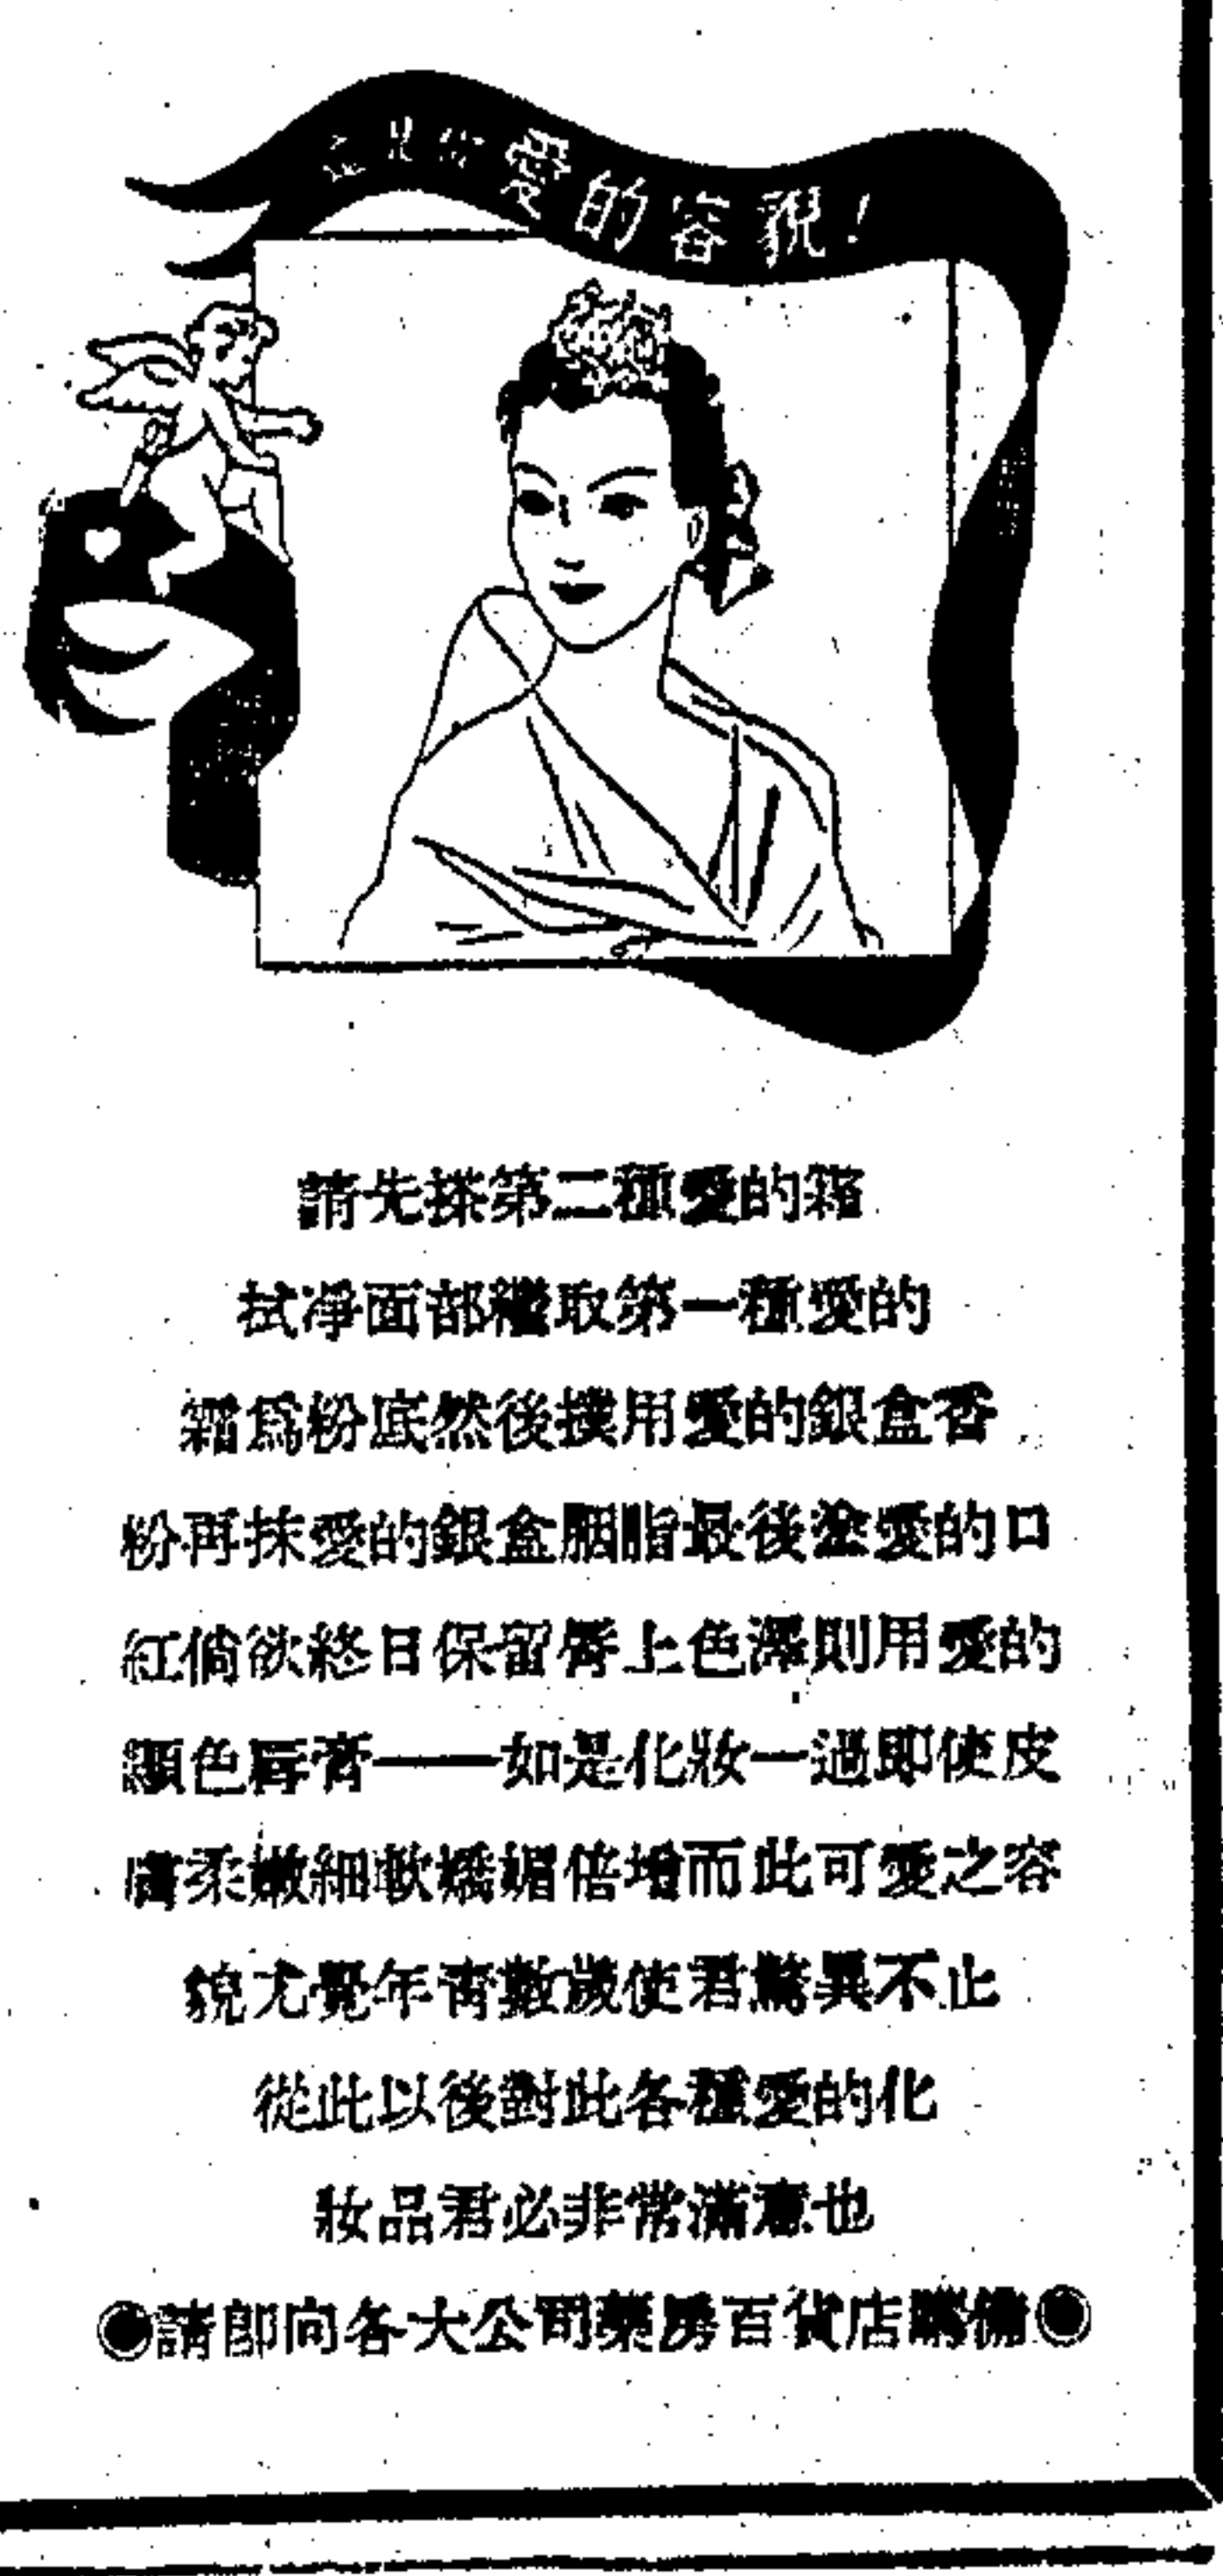 愛的容貌！
請先搽第二種愛的霜
拭凈面部繼取第一種愛的
霜爲粉底然後撲用愛的銀盒香
粉再抹愛的銀盒胭脂最後塗愛的口
紅倘欲終日保留脣上色澤則用愛的
顯色唇膏——如是化妝一過卽使皮
膚柔嫩細軟嬌媚倍增而此可愛之容
貌尤覺年靑數歲使君驚異不止
從此以後對此各種愛的化
妝品君必非常滿意也
◉請卽向各大公司藥房百貨店購備◉